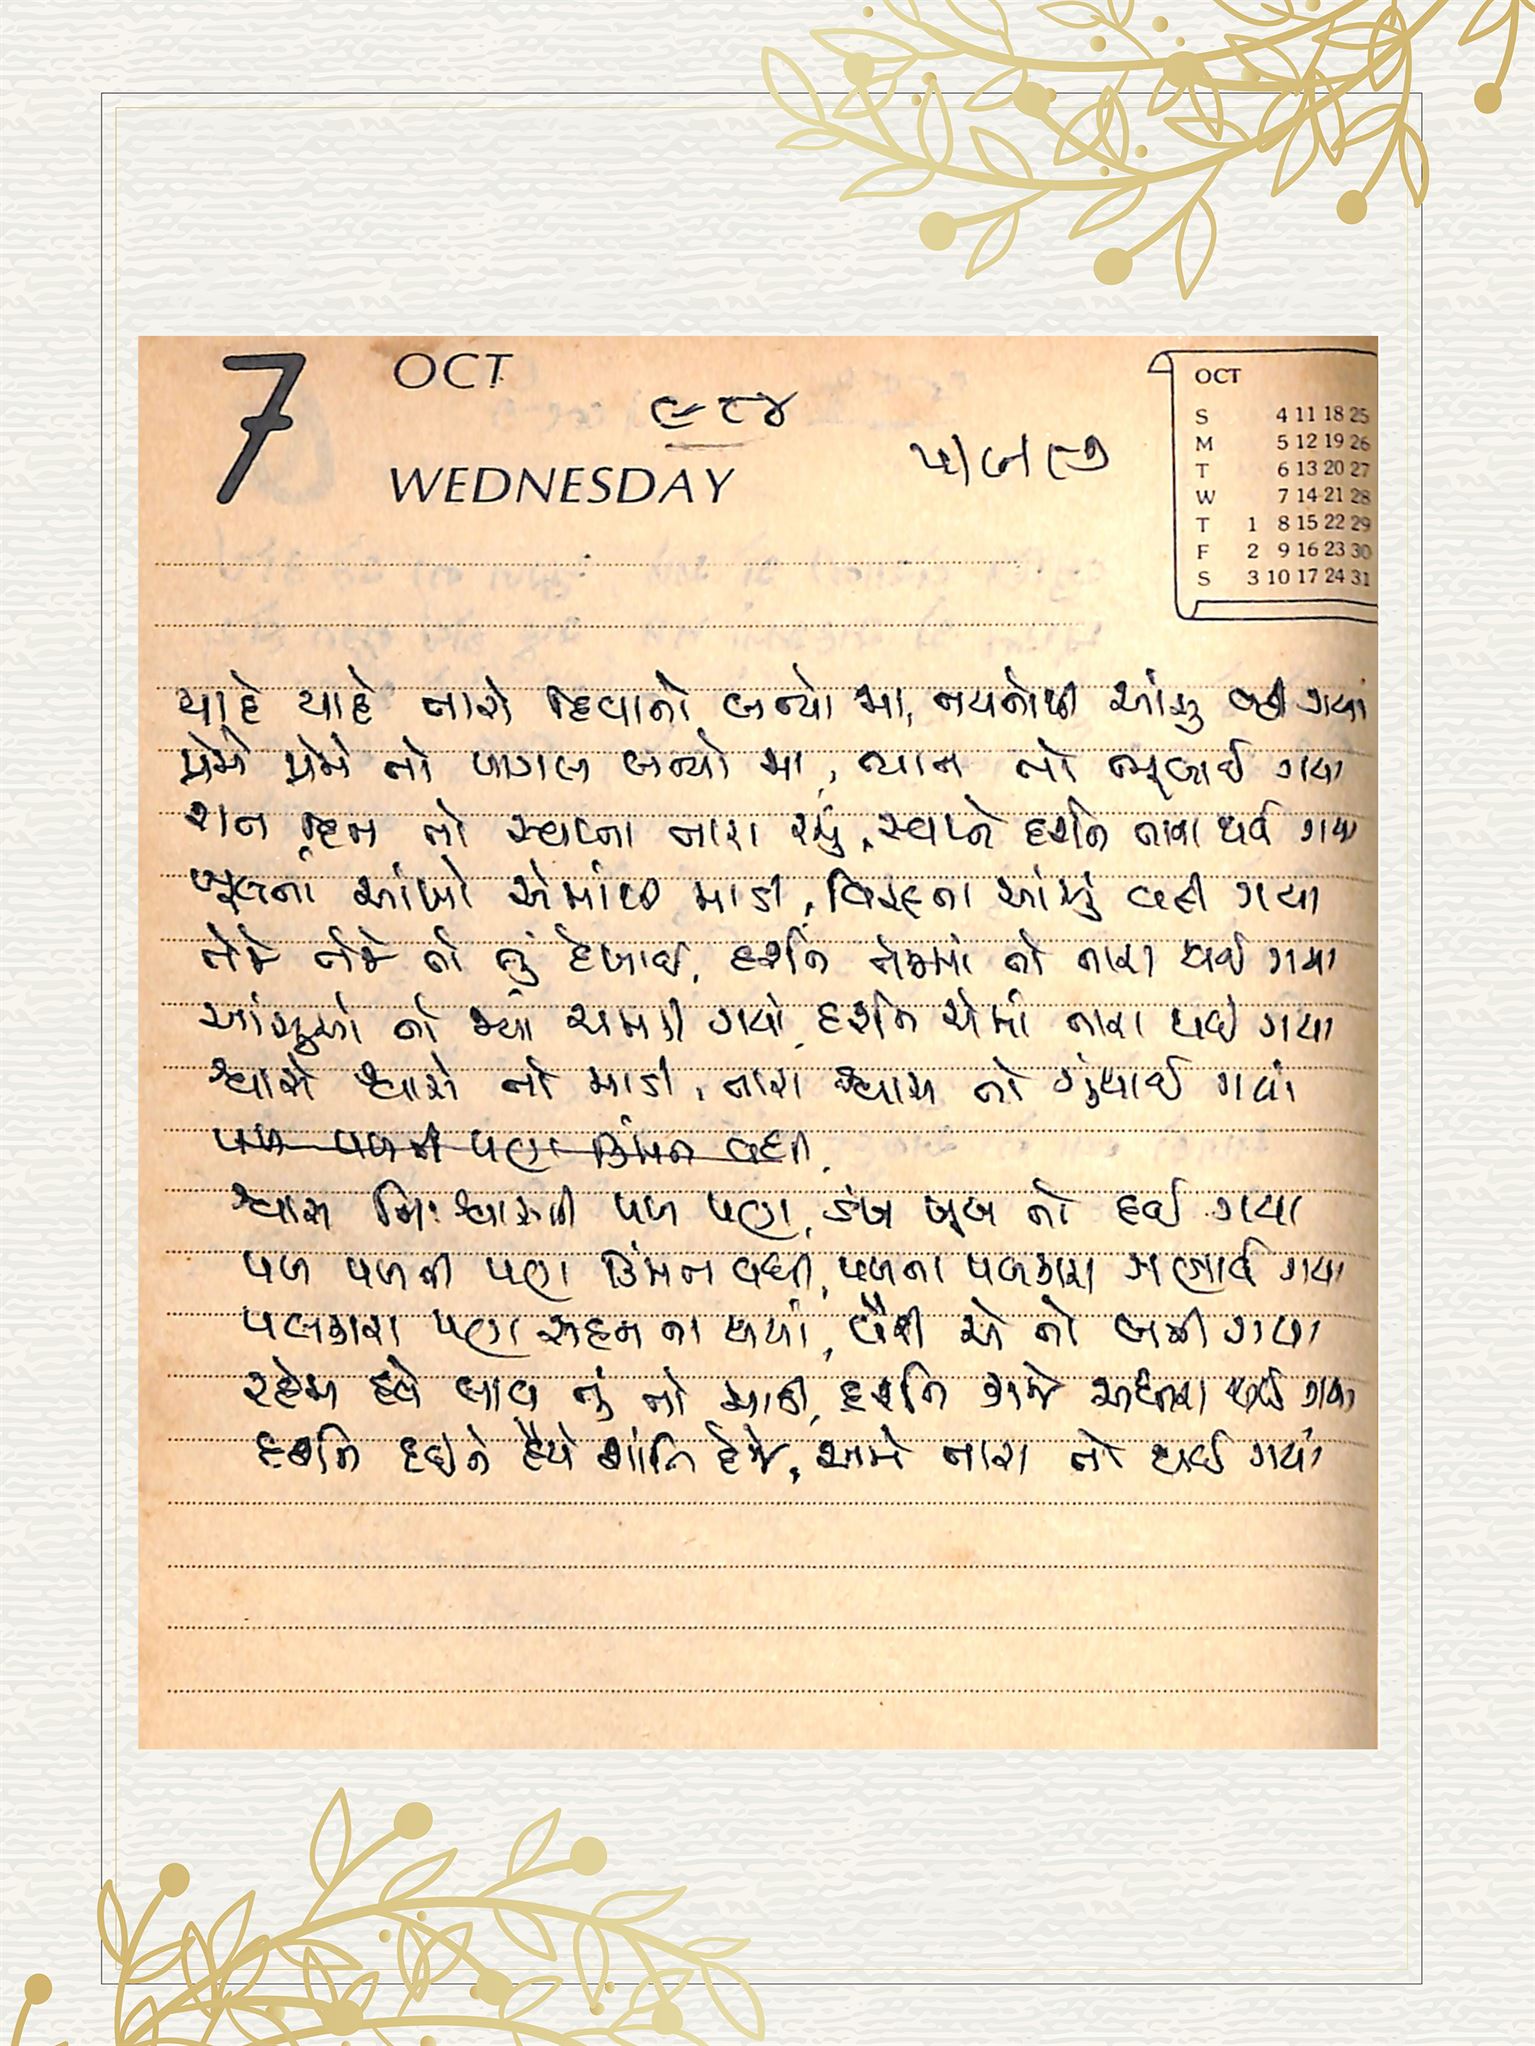 7 OCT
૯૮૪
WEDNESDAY
૫/૮/૮૭
OCT
S 4 11 18 25
M 5 12 19 26
T 6 13 20 27
W 7 14 21 28
T 1 8 15 22 29
F 2 9 16 23 30
S 3 10 17 24 31
યાદે યાદે તારો દિવાનો બન્યો મા, નયનોથી આંસુ વહી ગયાં
પ્રેમે પ્રેમે તો પાગલ બન્યો મા, ભાન તો ભૂલાઈ ગયા
રાત દિન તો સ્વપ્ના તારા રચું, સ્વપ્ને દર્શન તારા થઈ ગયા
ખૂલતાં આંખો એમાંથી માડી, વિરહના આંસું વહી ગયા
તેજે તેજે તો તું દેખાઈ, દર્શન તેજમાં તો તારા થઈ ગયા
આંસુઓ તો જ્યાં ચમકી ગયાં, દર્શન એમાં તારા થઈ ગયા
શ્વાસે શ્વાસે તો માડી, તારા શ્વાસ તો ગુંથાઈ ગયાં
પળ પળની પણ કિંમત વધી,
શ્વાસ નિઃશ્વાસની પળ પણ, ડંખ ખૂબ તો દઈ ગયા
પળ પળની પણ કિંમત વધી, પળના પલકારા ગણાઈ ગયા
પલકારા પણ સહન ના થયાં, વૈરી એ તો બની ગયા
રહેમ હવે લાવ તું તો માડી, દર્શન કાજે અધીરા થઈ ગયા
દર્શન દઈને હૈયે શાંતિ દેજે, અમે તારા તો થઈ ગયાં